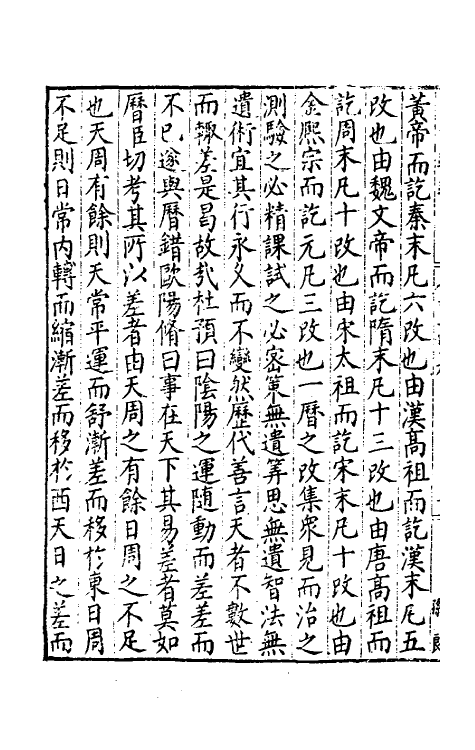 黃帝而訖秦末凡六改也由漢高祖而訖漢末凡五
改也由魏文帝而訖隋末凡十三改也由唐高祖而
訖周末凡十改也由宋太祖而訖宋末凡十改也由
金熈宗而訖元凡三改也一曆之改集衆見而治之
測驗之必精課試之必宻策無遺筭思無遺智法無
遺術宜其行永久而不變然歴代善言天者不數世
而輙差是曷故㢤杜預曰隂陽之運随動而差差而
不已遂與曆錯歐陽脩曰事在天下其易差者莫如
曆臣切考其所以差者由天周之有餘日周之不足
也天周有餘則天常平運而舒漸差而移於東日周
不足則日常内轉而縮漸差而移於西天日之差而